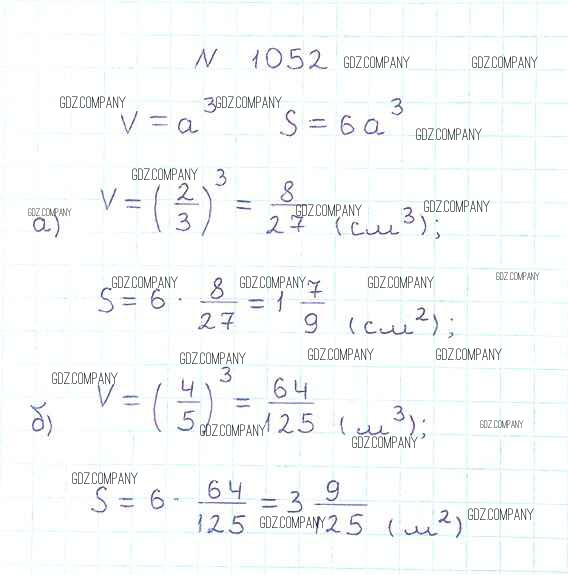 N 1052 GDZ.COMPANY GDZ.COMPANY
GDZ.COMPANY V = a³ GDZ.COMPANY S = 6a³ GDZ.COMPANY
GDZ.COMPANY
GDZ.COMPANY а) V = (2/3)³ = 8/27 (см³); GDZ.COMPANY GDZ.COMPANY
GDZ.COMPANY GDZ.COMPANY GDZ.COMPANY GDZ.COMPANY
S = 6 · 8/27 = 1 7/9 (см²);
GDZ.COMPANY GDZ.COMPANY GDZ.COMPANY
GDZ.COMPANY б) V = (4/5)³ = 64/125 (м³); GDZ.COMPANY GDZ.COMPANY GDZ.COMPANY
GDZ.COMPANY
S = 6 · 64/125 = 3 9/125 (м²) GDZ.COMPANY GDZ.COMPANY